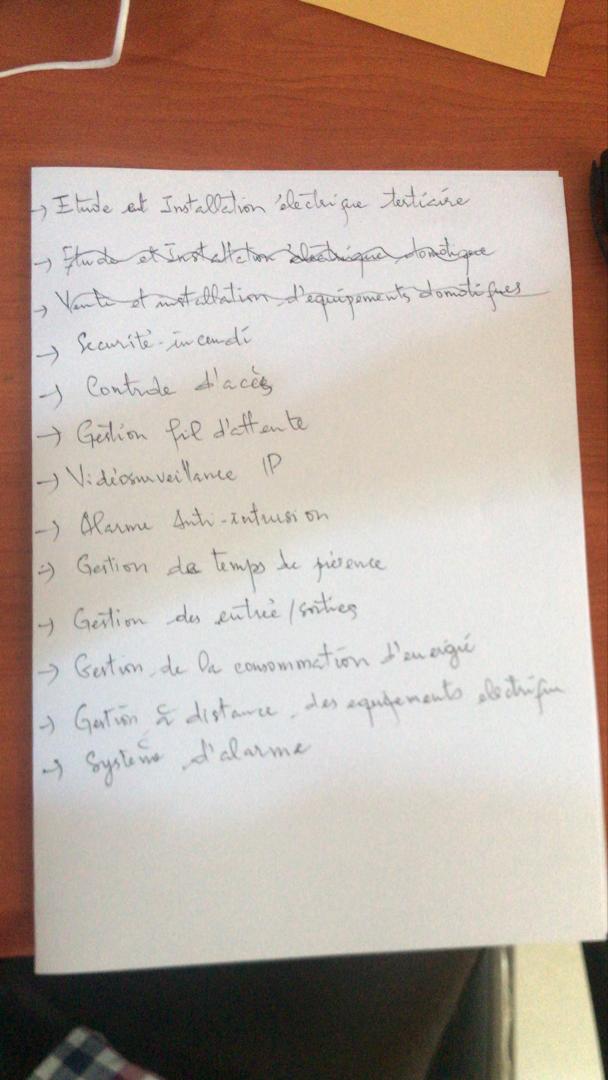 → Etude et Installation électrique tertiaire
→ Etude et Installation électrique domotique
→ Vente et installation d'équipements domotiques
→ Securité incendi
→ Controle d'accès
→ Gestion fil d'attente
→ Vidéosurveillance IP
→ Alarme Anti-intrusion
→ Gestion de temps de présence
→ Gestion des entrée/sorties
→ Gestion de la consommation d'energie
→ Gestion à distance des equipements electrique
→ Système d'alarme